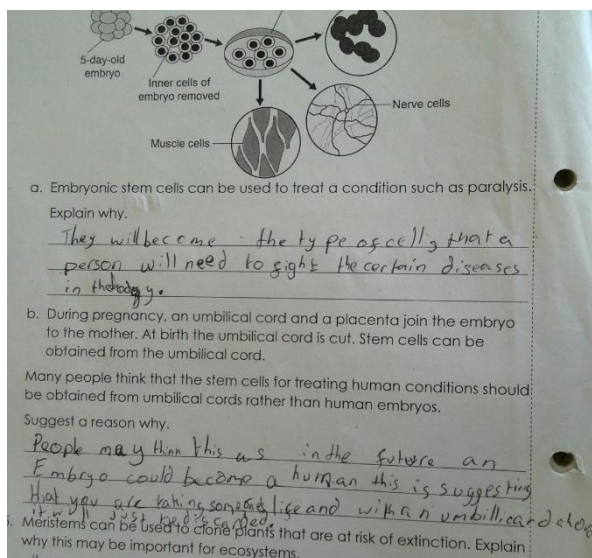 5-day-old
embryo
Inner cells of
embryo removed
Nerve cells
Muscle cells
a. Embryonic stem cells can be used to treat a condition such as paralysis.
Explain why.
They will become the type of cells that a
person will need to fight the certain diseases
in the body.
b. During pregnancy, an umbilical cord and a placenta join the embryo
to the mother. At birth the umbilical cord is cut. Stem cells can be
obtained from the umbilical cord.
Many people think that the stem cells for treating human conditions should
be obtained from umbilical cords rather than human embryos.
Suggest a reason why.
People may think this as in the future an
Embryo could become a human this is suggesting
that you are taking someones life and with an umbillicard
it will just be discarded.
5. Meristems can be used to clone plants that are at risk of extinction. Explain
why this may be important for ecosystems.